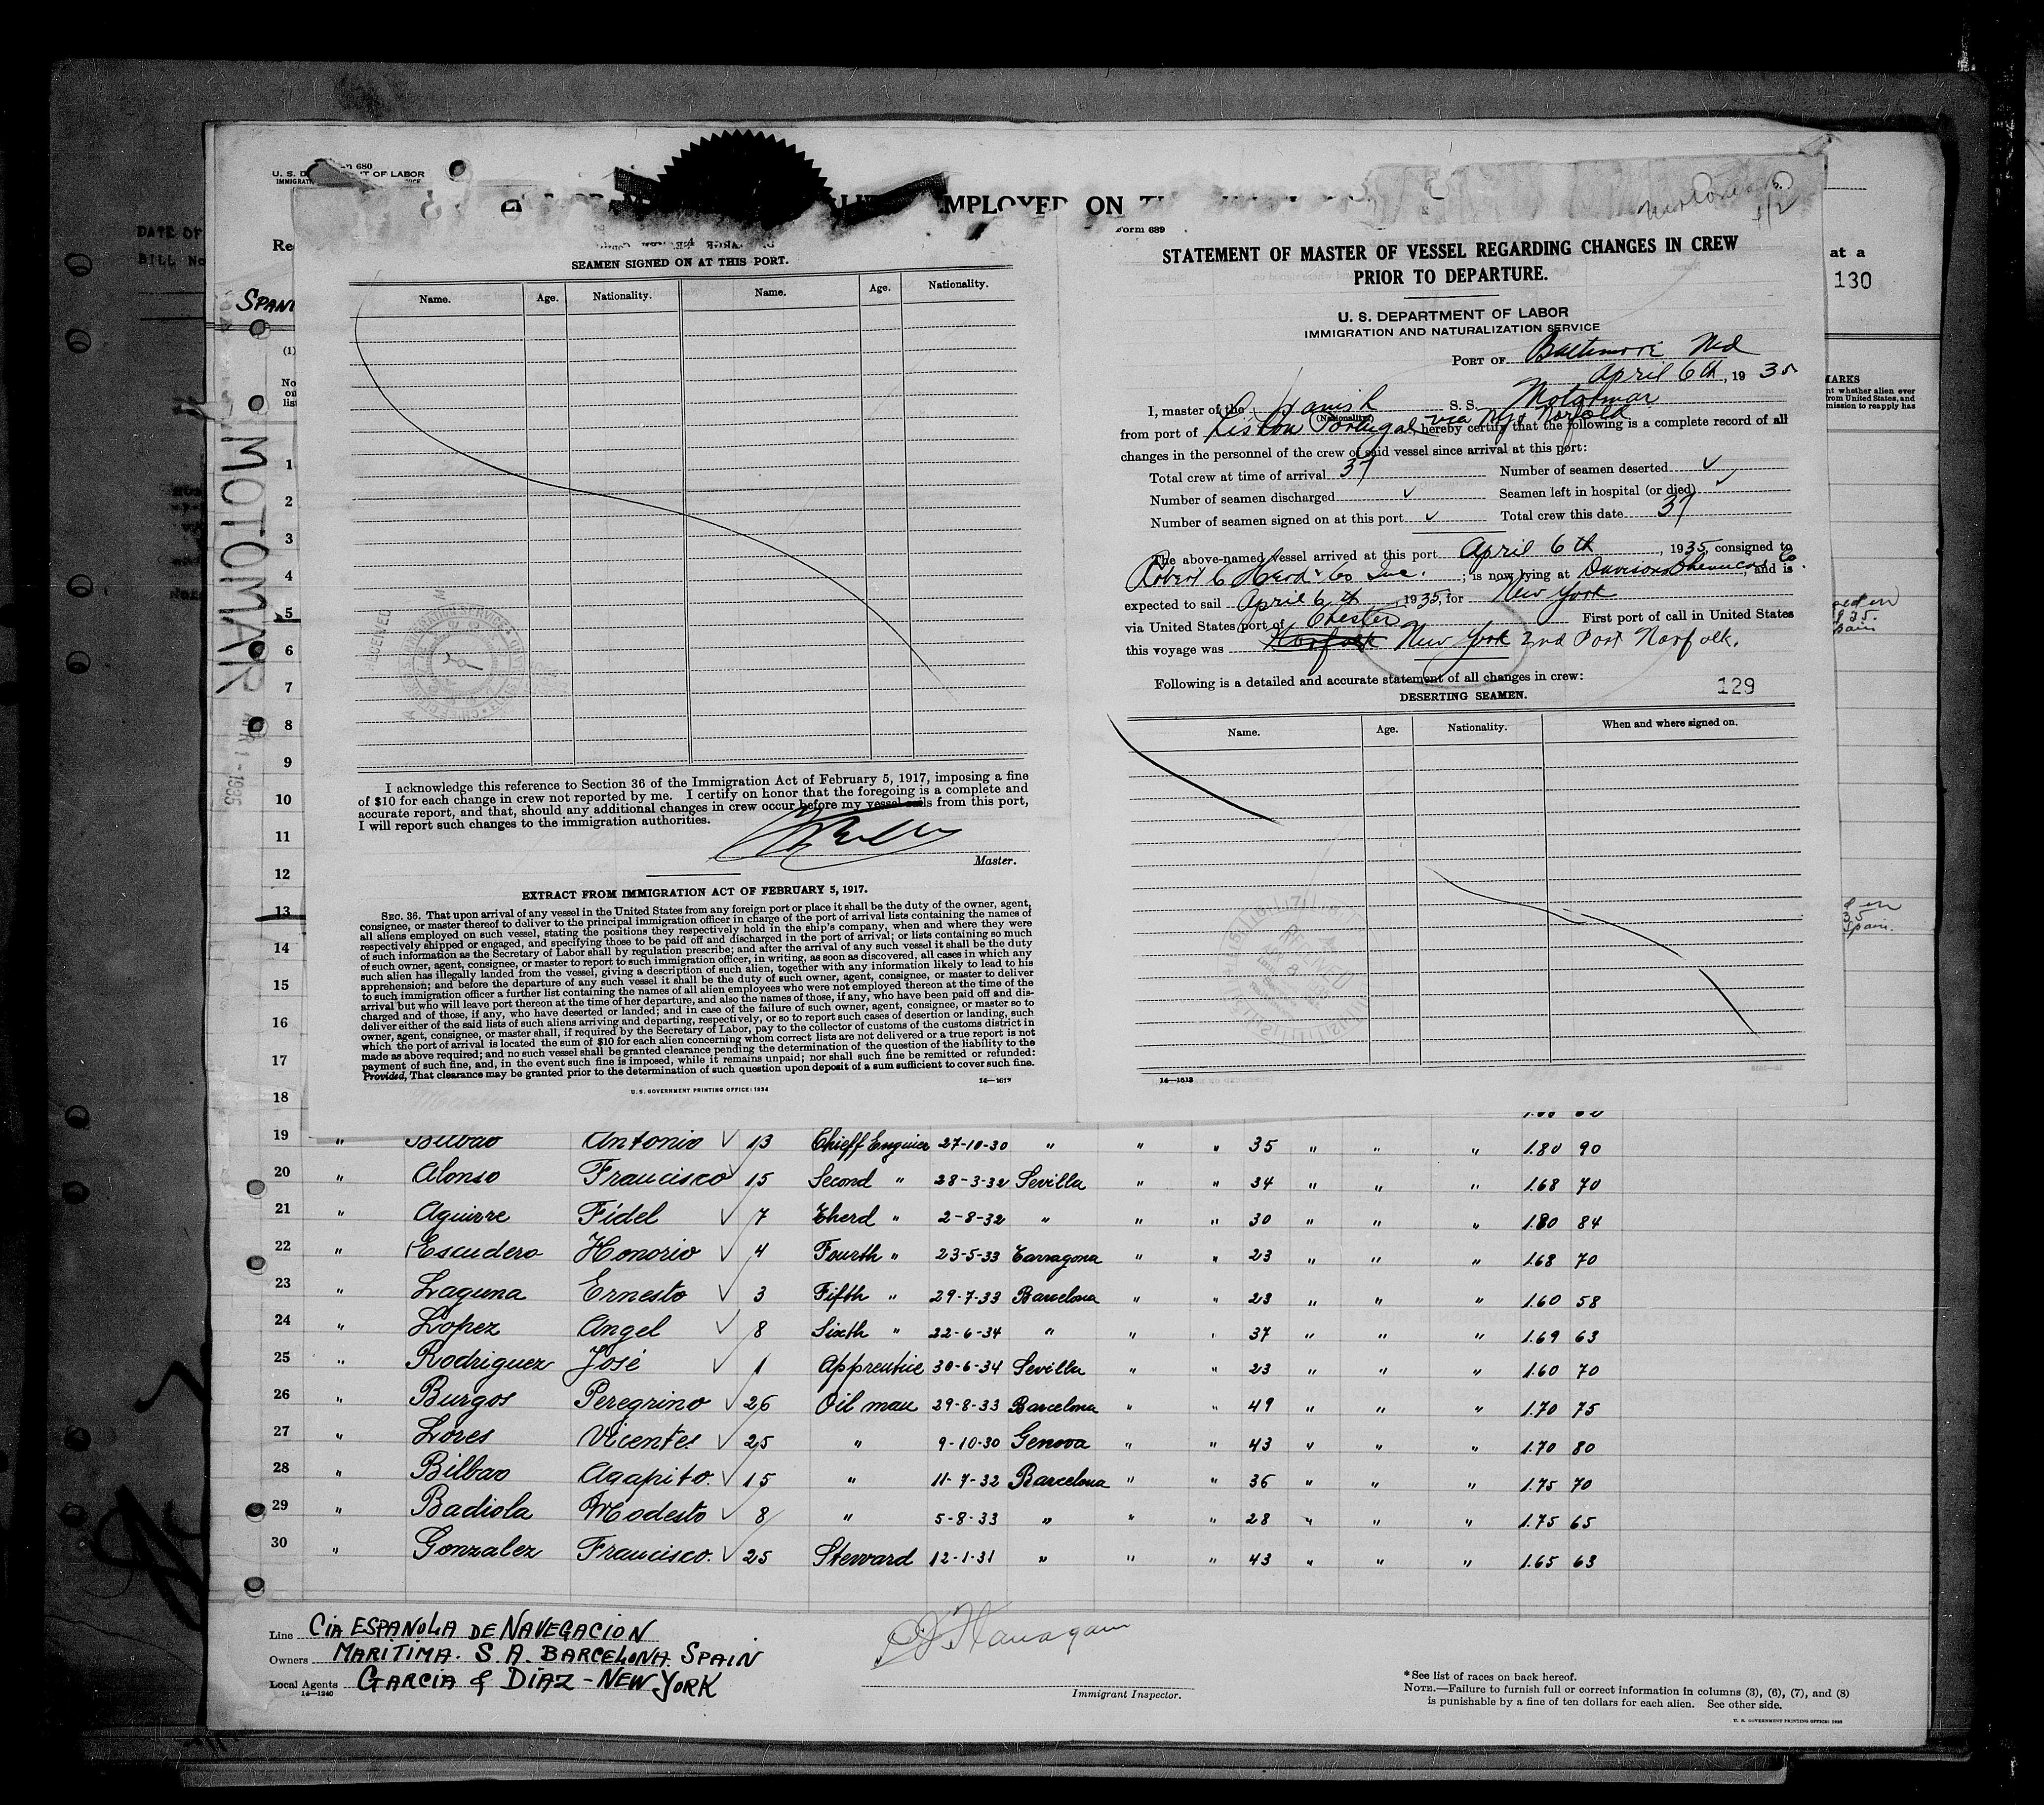 DATE OF
BILL No
Form 680
U. S. DEPARTMENT OF LABOR
EMPLOYED ON
Re
SPAN
at a
130
MARKS
nt whether alien ever
from United States, and
mission to reapply has
MOTOMAR
APR 1 - 1935
SEAMEN SIGNED ON AT THIS PORT.
Name. Age. Nationality. Name. Age. Nationality.
I acknowledge this reference to Section 36 of the Immigration Act of February 5, 1917, imposing a fine
of $10 for each change in crew not reported by me. I certify on honor that the foregoing is a complete and
accurate report, and that, should any additional changes in crew occur before my vessel sails from this port,
I will report such changes to the immigration authorities.
Master.
EXTRACT FROM IMMIGRATION ACT OF FEBRUARY 5, 1917.
SEC. 36. That upon arrival of any vessel in the United States from any foreign port or place it shall be the duty of the owner, agent,
consignee, or master thereof to deliver to the principal immigration officer in charge of the port of arrival lists containing the names of
all aliens employed on such vessel, stating the positions they respectively hold in the ship's company, when and where they were
respectively shipped or engaged, and specifying those to be paid off and discharged in the port of arrival; or lists containing so much
of such information as the Secretary of Labor shall by regulation prescribe; and after the arrival of any such vessel it shall be the duty
of such owner, agent, consignee, or master to report to such immigration officer, in writing, as soon as discovered, all cases in which any
such alien has illegally landed from the vessel, giving a description of such alien, together with any information likely to lead to his
apprehension; and before the departure of any such vessel it shall be the duty of such owner, agent, consignee, or master to deliver
to such immigration officer a further list containing the names of all alien employees who were not employed thereon at the time of the
arrival but who will leave port thereon at the time of her departure, and also the names of those, if any, who have been paid off and dis-
charged and of those, if any, who have deserted or landed; and in case of the failure of such owner, agent, consignee, or master so to
deliver either of the said lists of such aliens arriving and departing, respectively, or so to report such cases of desertion or landing, such
owner, agent, consignee, or master shall, if required by the Secretary of Labor, pay to the collector of customs of the customs district in
which the port of arrival is located the sum of $10 for each alien concerning whom correct lists are not delivered or a true report is not
made as above required; and no such vessel shall be granted clearance pending the determination of the question of the liability to the
payment of such fine, and, in the event such fine is imposed, while it remains unpaid; nor shall such fine be remitted or refunded:
Provided, That clearance may be granted prior to the determination of such question upon deposit of a sum sufficient to cover such fine.
U. S. GOVERNMENT PRINTING OFFICE: 1934 14—1613
Form 689
STATEMENT OF MASTER OF VESSEL REGARDING CHANGES IN CREW
PRIOR TO DEPARTURE.
U. S. DEPARTMENT OF LABOR
IMMIGRATION AND NATURALIZATION SERVICE
PORT OF Baltimore Md
April 6th, 1935
I, master of the Spanish S. S. Motomar
(Nationality)
from port of Lisbon Portugal via NY & Norfolk hereby certify that the following is a complete record of all
changes in the personnel of the crew of said vessel since arrival at this port:
Total crew at time of arrival 37 Number of seamen deserted ✓
Number of seamen discharged ✓ Seamen left in hospital (or died) ✓
Number of seamen signed on at this port ✓ Total crew this date 37
The above-named vessel arrived at this port April 6th, 1935, consigned to
Robert C Herd & Co Inc.; is now lying at Davison Chemical Co, and is
expected to sail April 6th, 1935, for New York
via United States port of Chester First port of call in United States
this voyage was Norfolk New York 2nd Port Norfolk.
Following is a detailed and accurate statement of all changes in crew:
129
DESERTING SEAMEN.
Name. Age. Nationality. When and where signed on.
14—1613
1
2
3
4
5
6
7
8
9
10
11
12
13
14
15
16
17
18
19 " Bilbao Antonio ✓ 13 Chieff Enginier 27-10-30 " " " 35 " " " 1.80 90
20 " Alonso Francisco ✓ 15 Second " 28-3-32 Sevilla " " 34 " " " 1.68 70
21 " Aguirre Fidel ✓ 7 Therd " 2-8-32 " " " 30 " " " 1.80 84
22 " Escudero Honorio ✓ 4 Fourth " 23-5-33 Tarragona " " 23 " " " 1.68 70
23 " Laguna Ernesto ✓ 3 Fifth " 29-7-33 Barcelona " " 23 " " " 1.60 58
24 " Lopez Angel ✓ 8 Sixth " 22-6-34 " " " 37 " " " 1.69 63
25 " Rodriguez José ✓ 1 Apprentice 30-6-34 Sevilla " " 23 " " " 1.60 70
26 " Burgos Peregrino ✓ 26 Oil man 29-8-33 Barcelona " " 49 " " " 1.70 75
27 " Lores Vicente ✓ 25 " 9-10-30 Genova " " 43 " " " 1.70 80
28 " Bilbao Agapito. ✓ 15 " 11-7-32 Barcelona " " 36 " " " 1.75 70
29 " Badiola Modesto ✓ 8 " 5-8-33 " " " 28 " " " 1.75 65
30 " Gonzalez Francisco. ✓ 25 Steward 12-1-31 " " " 43 " " " 1.65 63
Line CIA ESPANOLA DE NAVEGACION
Owners MARITIMA. S. A. BARCELONA. SPAIN
Local Agents GARCIA & DIAZ - NEW YORK
14—1240
Flanagan
Immigrant Inspector.
*See list of races on back hereof.
NOTE.—Failure to furnish full or correct information in columns (3), (6), (7), and (8)
is punishable by a fine of ten dollars for each alien. See other side.
U. S. GOVERNMENT PRINTING OFFICE: 1935